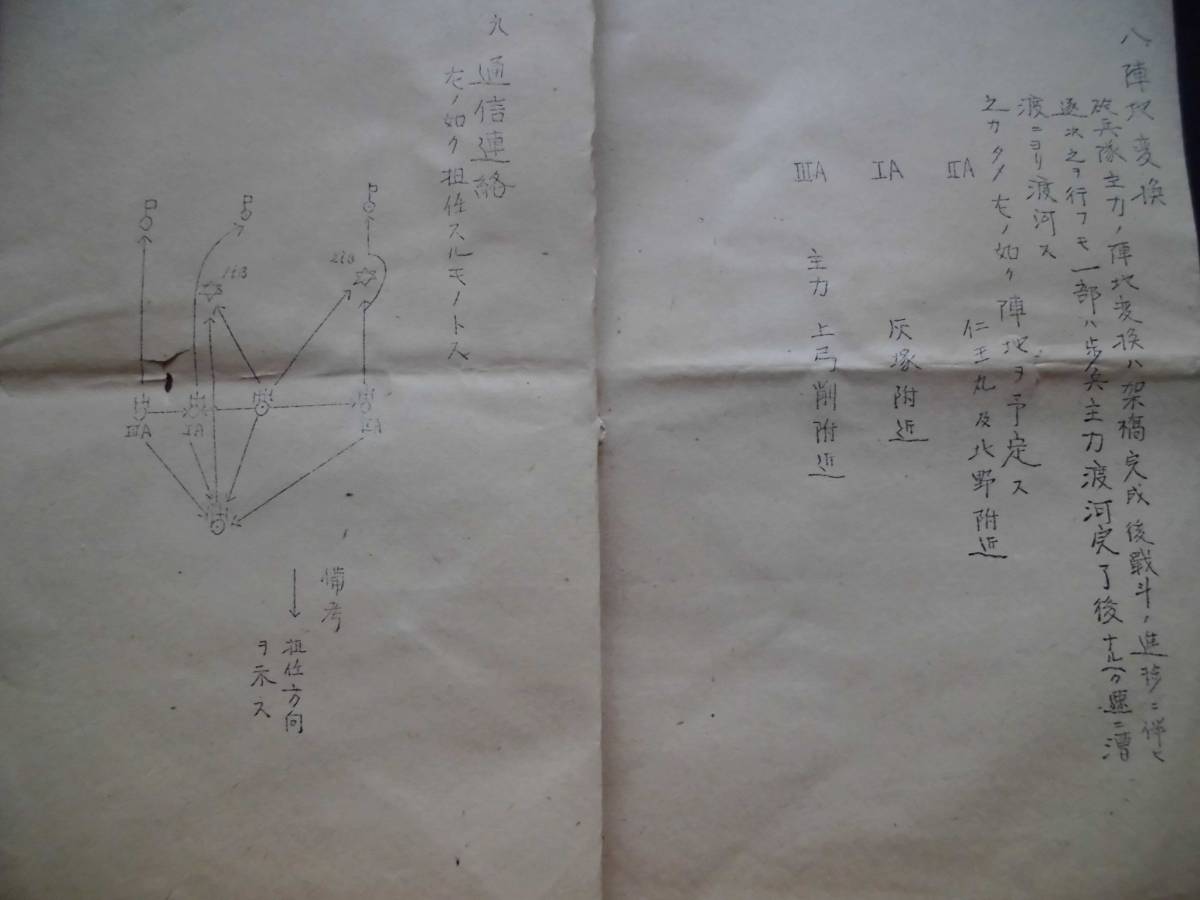 八、陣地変換
砲兵隊主力ノ陣地変換ハ架橋完成後戦斗ノ進捗ニ伴ヒ
逐次之ヲ行フモ一部ハ歩兵主力渡河完了後ナルヘク速ニ漕
渡ニヨリ渡河ス
之カタメ左ノ如ク陣地ヲ予定ス
ⅡA 仁王丸及北野附近
ⅠA 灰塚附近
ⅢA 主力 上弓削附近
九 通信連絡
左ノ如ク担任スルモノトス
2iB
1iB
ⅢA
ⅠA
ⅡA
備考
担任方向
ヲ示ス